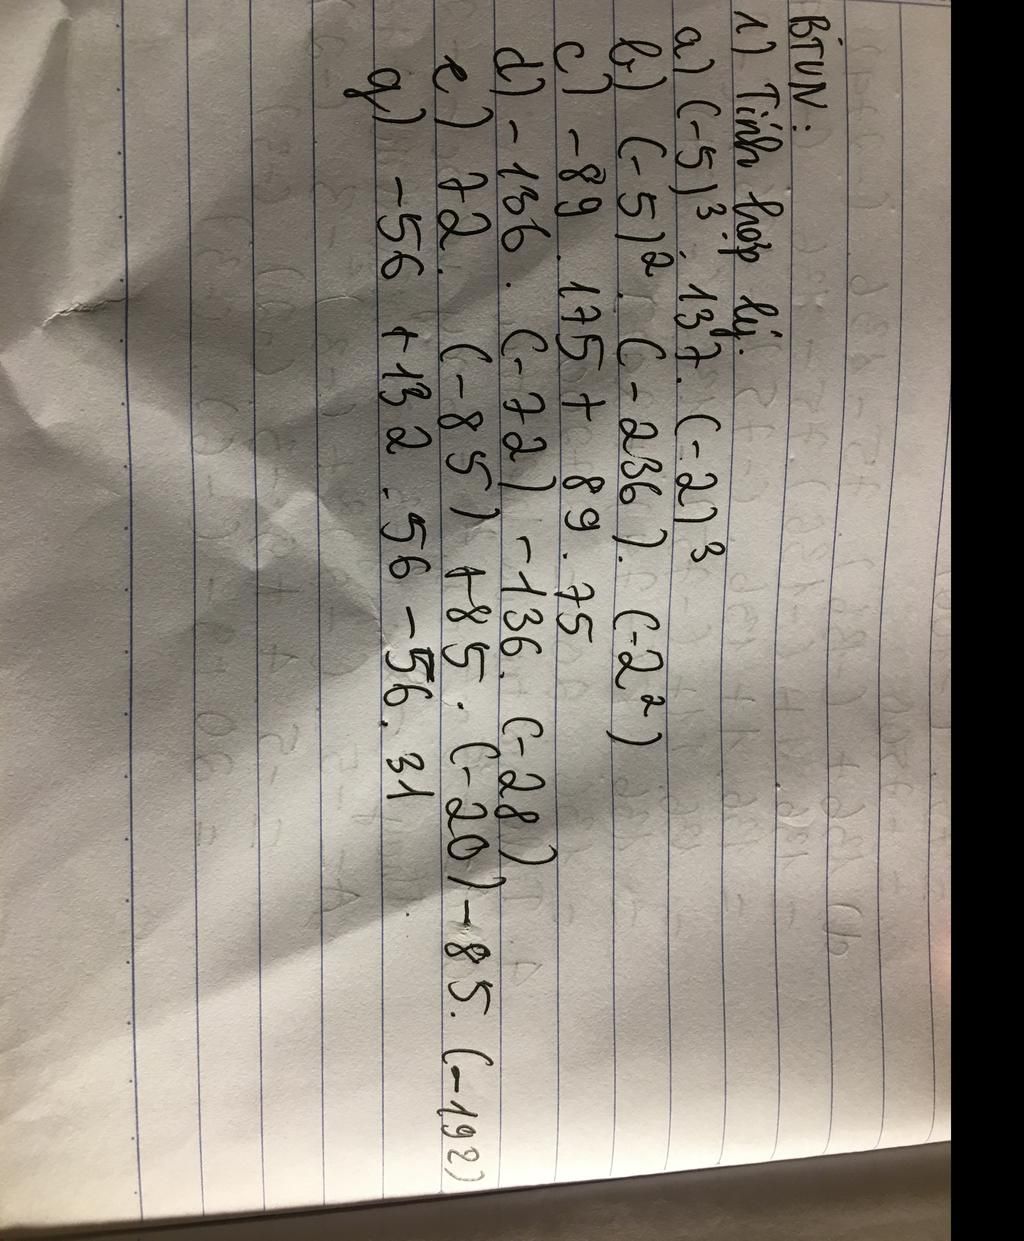 BTVN:
1) Tính hợp lý.
a) (-5)³. 137. (-2)³
b) (-5)². (-236). (-2²)
c) -89. 175 + 89. 75
d) -136. (-72) -136. (-28)
e) 72. (-85) +85. (-20) -85. (-192)
g) -56 +132. 56 -56. 31